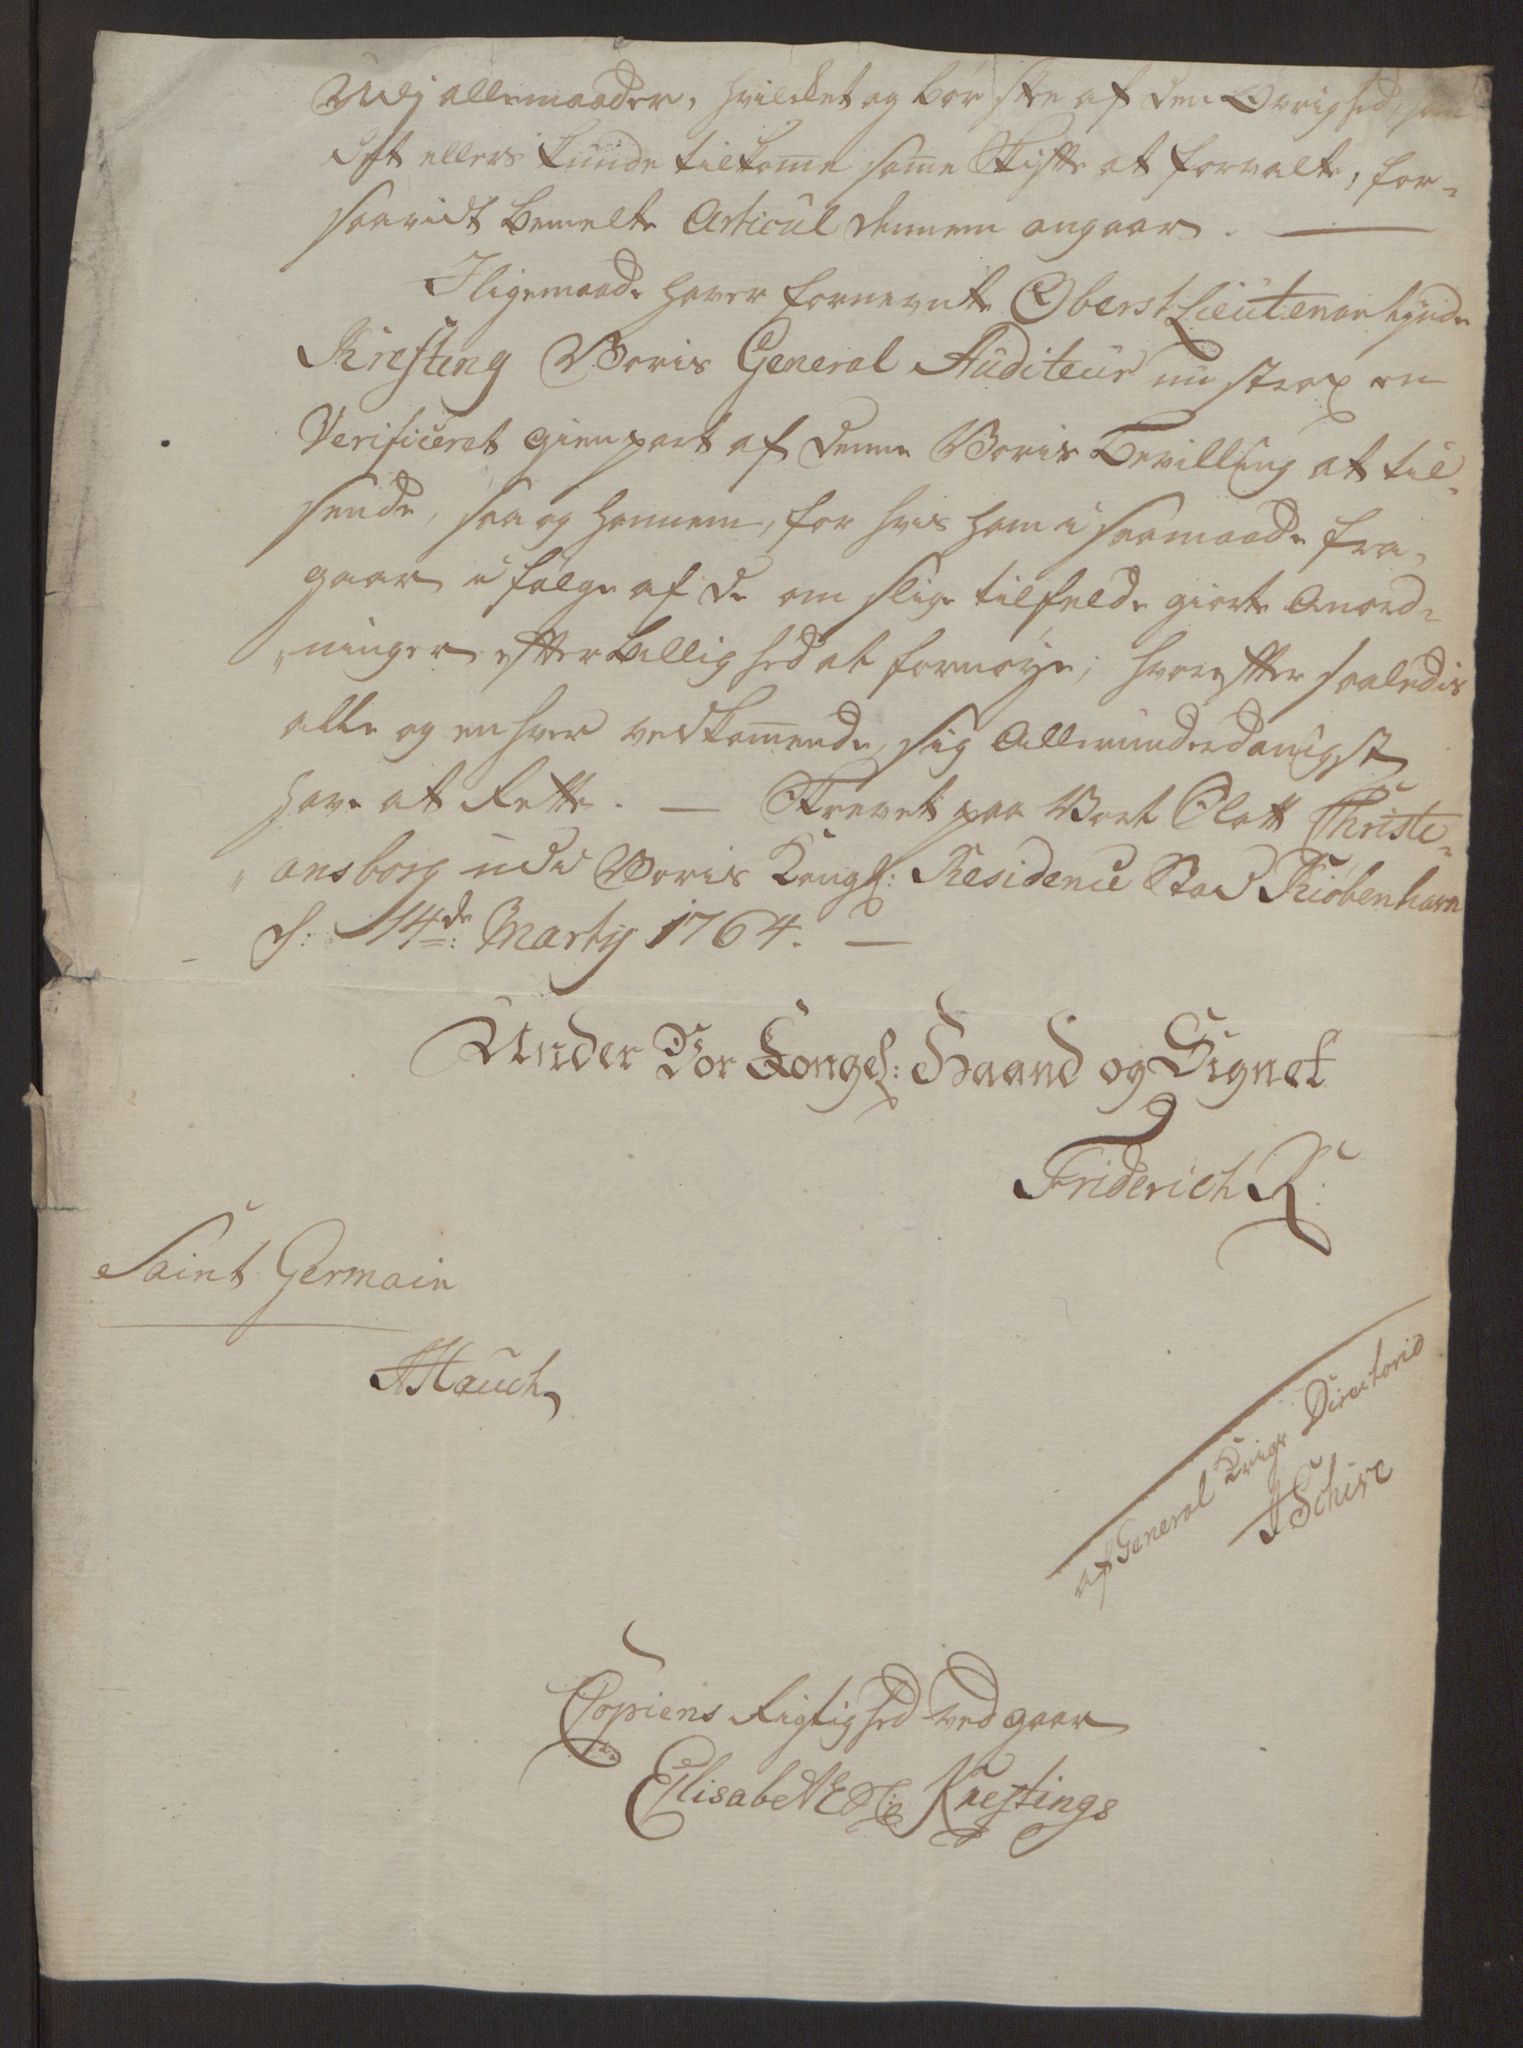 Udj allemaader, hvilcket og bör skee af den Øvrighed, som
det ellers kunde tilkom̄e sam̄e Skifte at forvalte, for-
saavidt bemelte Articul dennem angaar. —
Iligemaade haver fornevnte Oberst Lieutenantqvinde
Kresting Voris General Auditeur nu strax en
Verificeret gienpart af denne Voris Bevilling at til-
sende, saa og hannem, for hvis ham i saamaade fra-
gaar i fölge af de om slige tilfelde giorte Anord-
„ninger efter billighed at fornöye; hvorefter saaledis
alle og enhver vedkom̄ende, sig Allerunderdanigst
have at Rette. — Skrevet paa Vort Slott Christi-
„ansborg udi Voris Kongl: Residence Stad Kiöbenhavn
d: 14de: Martij 1764. —
Under Vor Kongel: Haand og Signet
Friderich R:
Saint Germain
AHauch
af General Krigs Directorio
Schive
Copiens Rigtighed ved gaar
Elisabeth Krestings